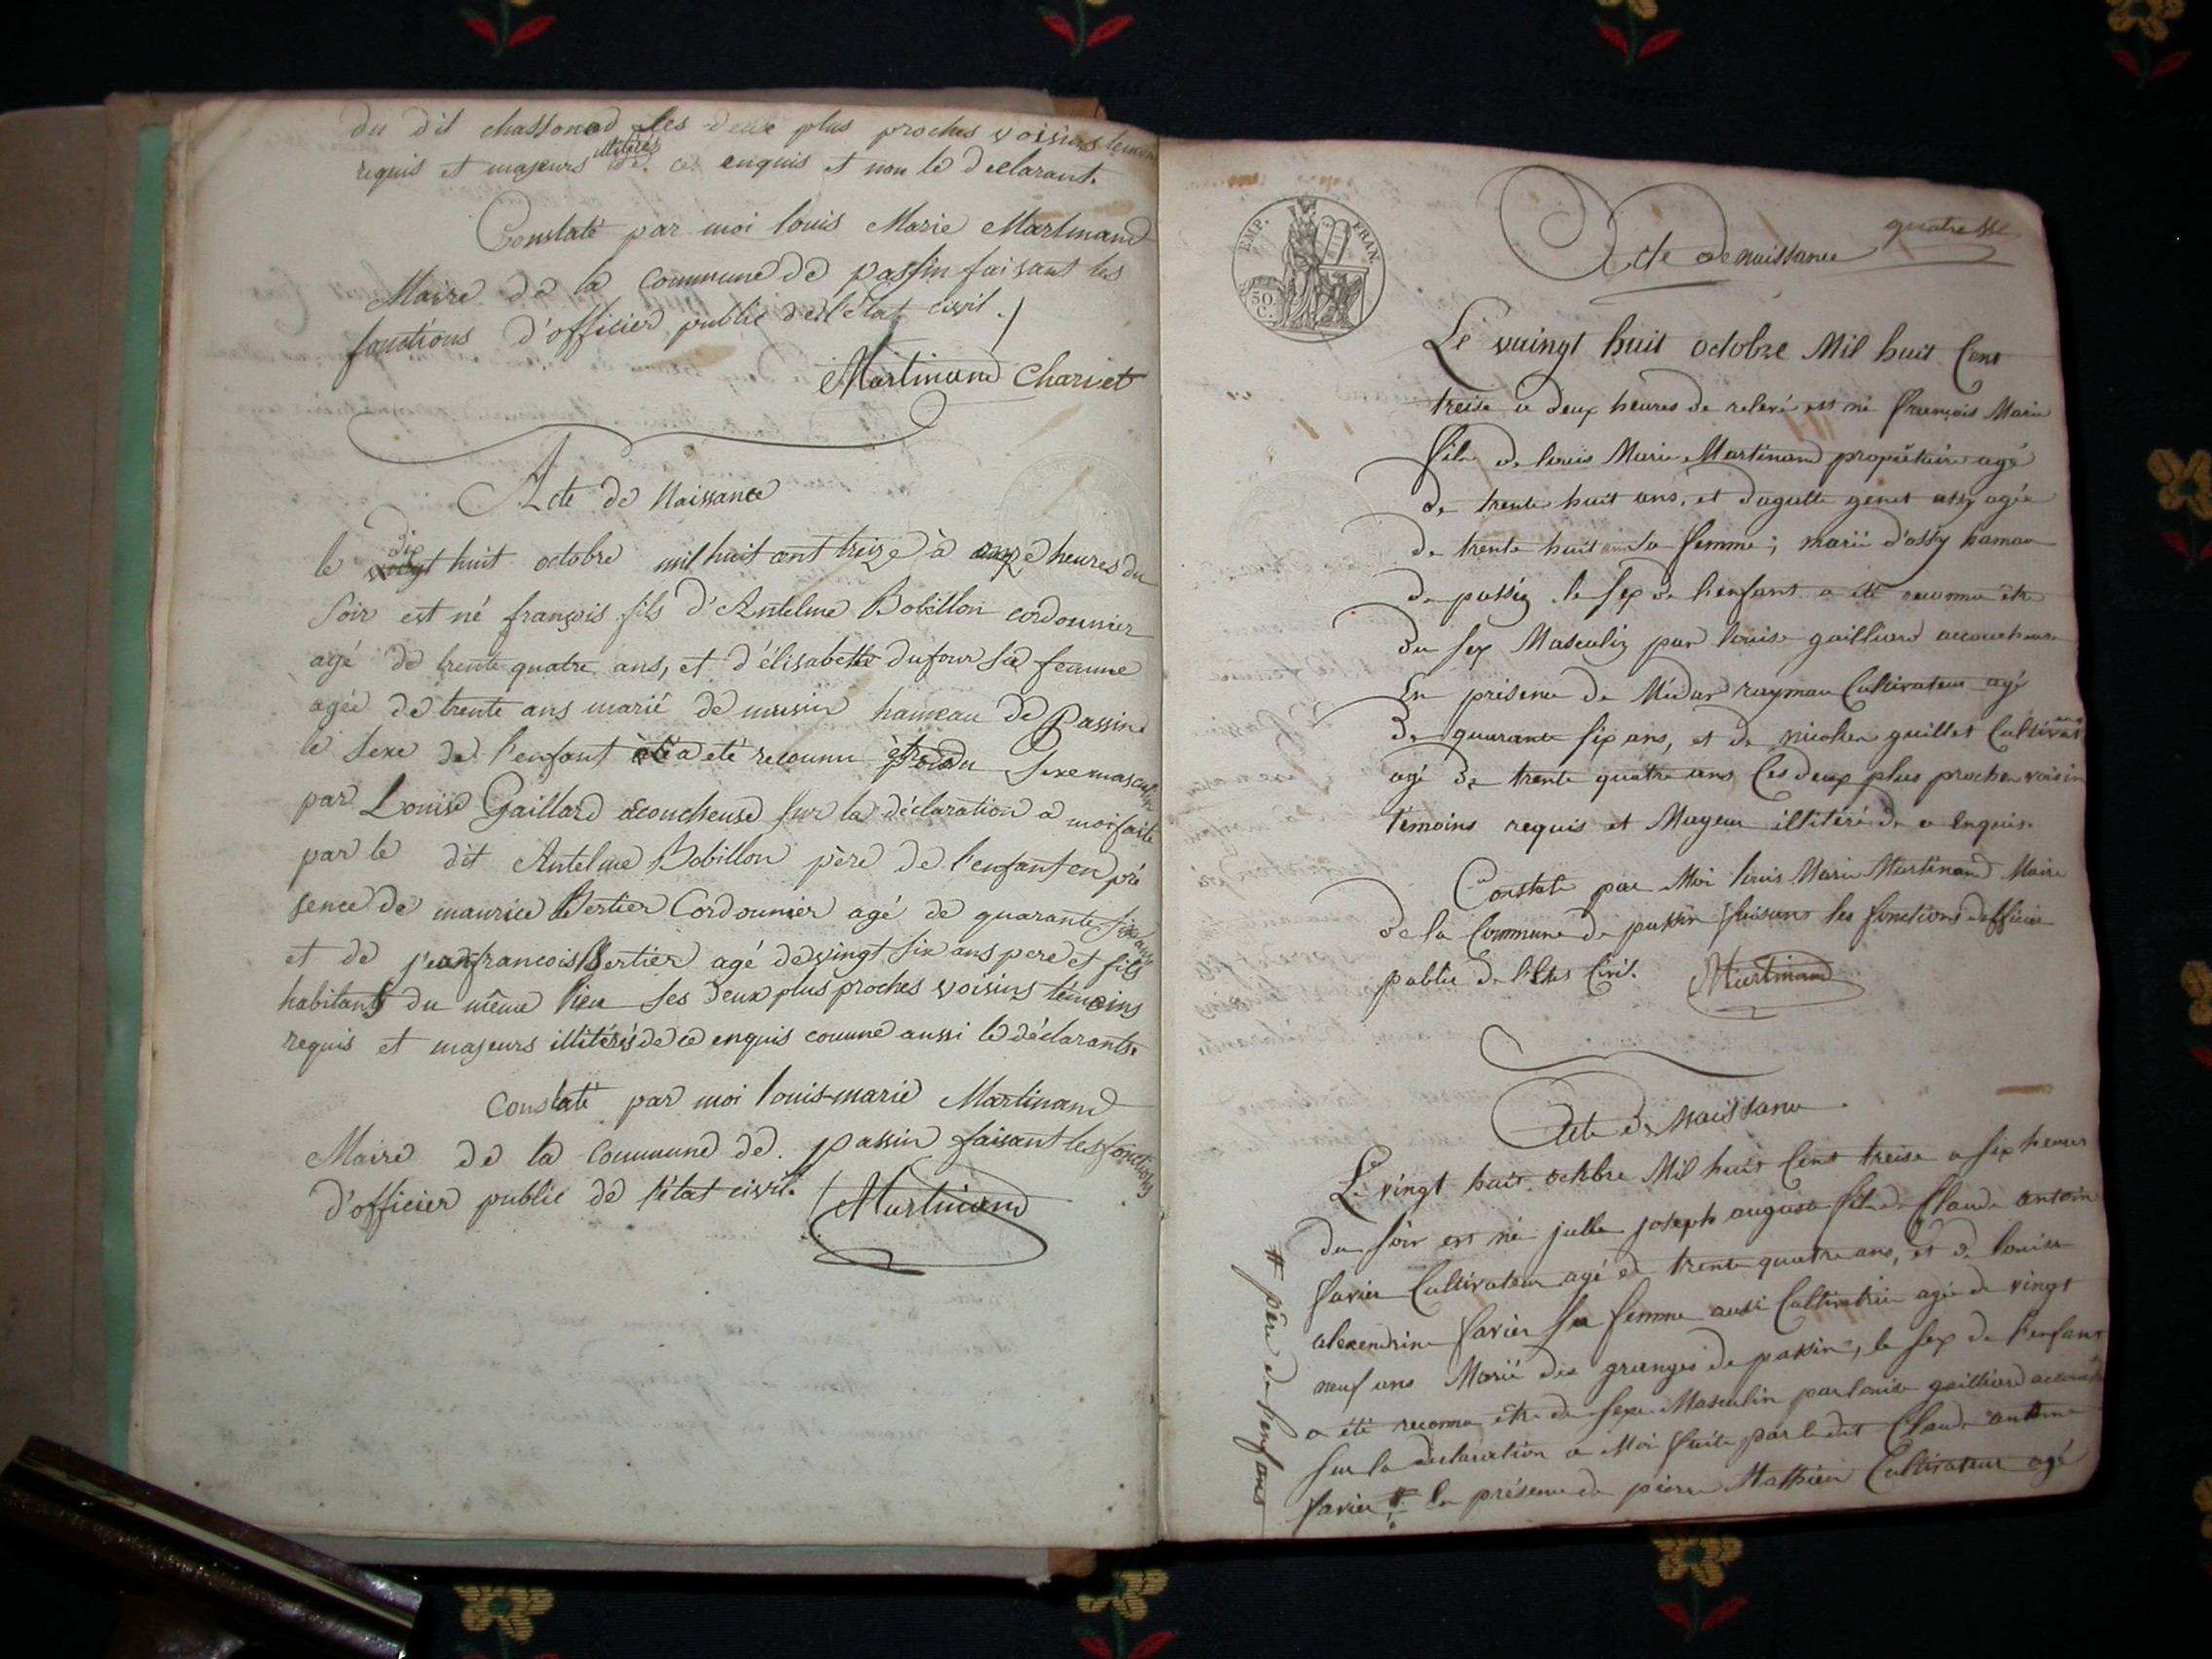 du dit chassonod les deux plus proches voisins temoins
requis et majeurs illiterés de ce enquis et non le declarant.
Constaté par moi louis Marie Martinand
Maire de la commune de passin faisant les
fonctions d'officier public de l'état civil.
Martinand Charvet
Acte de Naissance
le dix huit octobre mil huit cent treize à onze heures du
soir est né françois fils d'Antelme Bobillon cordonnier
agé de trente quatre ans, et d'élisabette dufour sa femme
agée de trente ans marié de musin hameau de Passin
le sexe de l'enfant a eté reconnu du sexe masculin
par Louise Gaillard acoucheuse sur la déclaration a moi faite
par le dit Antelme Bobillon père de l'enfant en pré
sence de maurice Bertier Cordonnier agé de quarante six ans
et de jean francois Bertier agé de vingt six ans pere et fils
habitants du même lieu les deux plus proches voisins témoins
requis et majeurs illitérés de ce enquis comme aussi le déclarants.
Constaté par moi louis-marie Martinand
Maire de la commune de passin faisant les fonctions
d'officier public de l'état civil.
Martinand
EMP. FRAN.
50. C.
quatre
Acte de naissance
Le vuingt huit octobre Mil huit Cent
treise a deux heures de relevé est né francois Marie
fils de louis Marie Martinand propriétaire agé
de trente huit ans, et dagatte genet assy agée
de trente huit ans sa femme; marié d'ossy hamau
de passin le sex de l'enfant a été reconnu être
du sex Masculin par louise gailliard accoucheuse
En présence de Médar rayman Cultivateur agé
de quarante six ans, et de nicolas guillet Cultivateur
agé de trente quatre ans les deux plus proches voisin
témoins requis et Mageur illitéré de ce Enquis.
Constaté par Moi louis Marie Martinand Maire
de la Commune de passin faisant les fonctions dofficier
public de l'état Civil. Martinand
Acte de Naissance
Le vingt huit octobre Mil huit Cent treise a six heures
du soir est né julle joseph auguste fils de Claude antoine
favier Cultivateur agé de trente quatre ans, et de louise
alexendrine favier sa femme aussi Cultivatrice agée de vingt
neuf ans Marié des granges de passin, le sex de l'enfant
a été reconnu être du sexe Masculin par louise gailliard
sur la declaration a Moi faite par le dit Claude antoine
favier # En présence de pierre Mathieu Cultivateur agé
# père de l'enfant